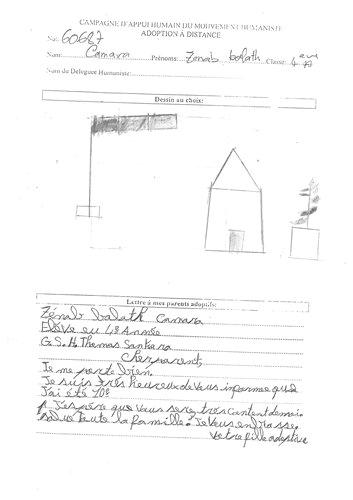 CAMPAGNE D'APPUI HUMAIN DU MOUVEMENT HUMANISTE
ADOPTION À DISTANCE
No: 60687
Nom: Camara Prénoms: Zenab balath Classe: 4 A
Nom du Délégué Humaniste:
Dessin au choix:
Lettre à mes parents adoptifs:
Zénab balath Camara
Elève eu 4e Année
G.S.H. Thomas Sankara
Cher parent,
Je me porte bien.
Je suis très heureux de Vous informee que
J'ai été 10e
J'espère que Vous sere très Content de moi.
salue toute la famille. Je Vous enbrasse.
Votre fille adoptive